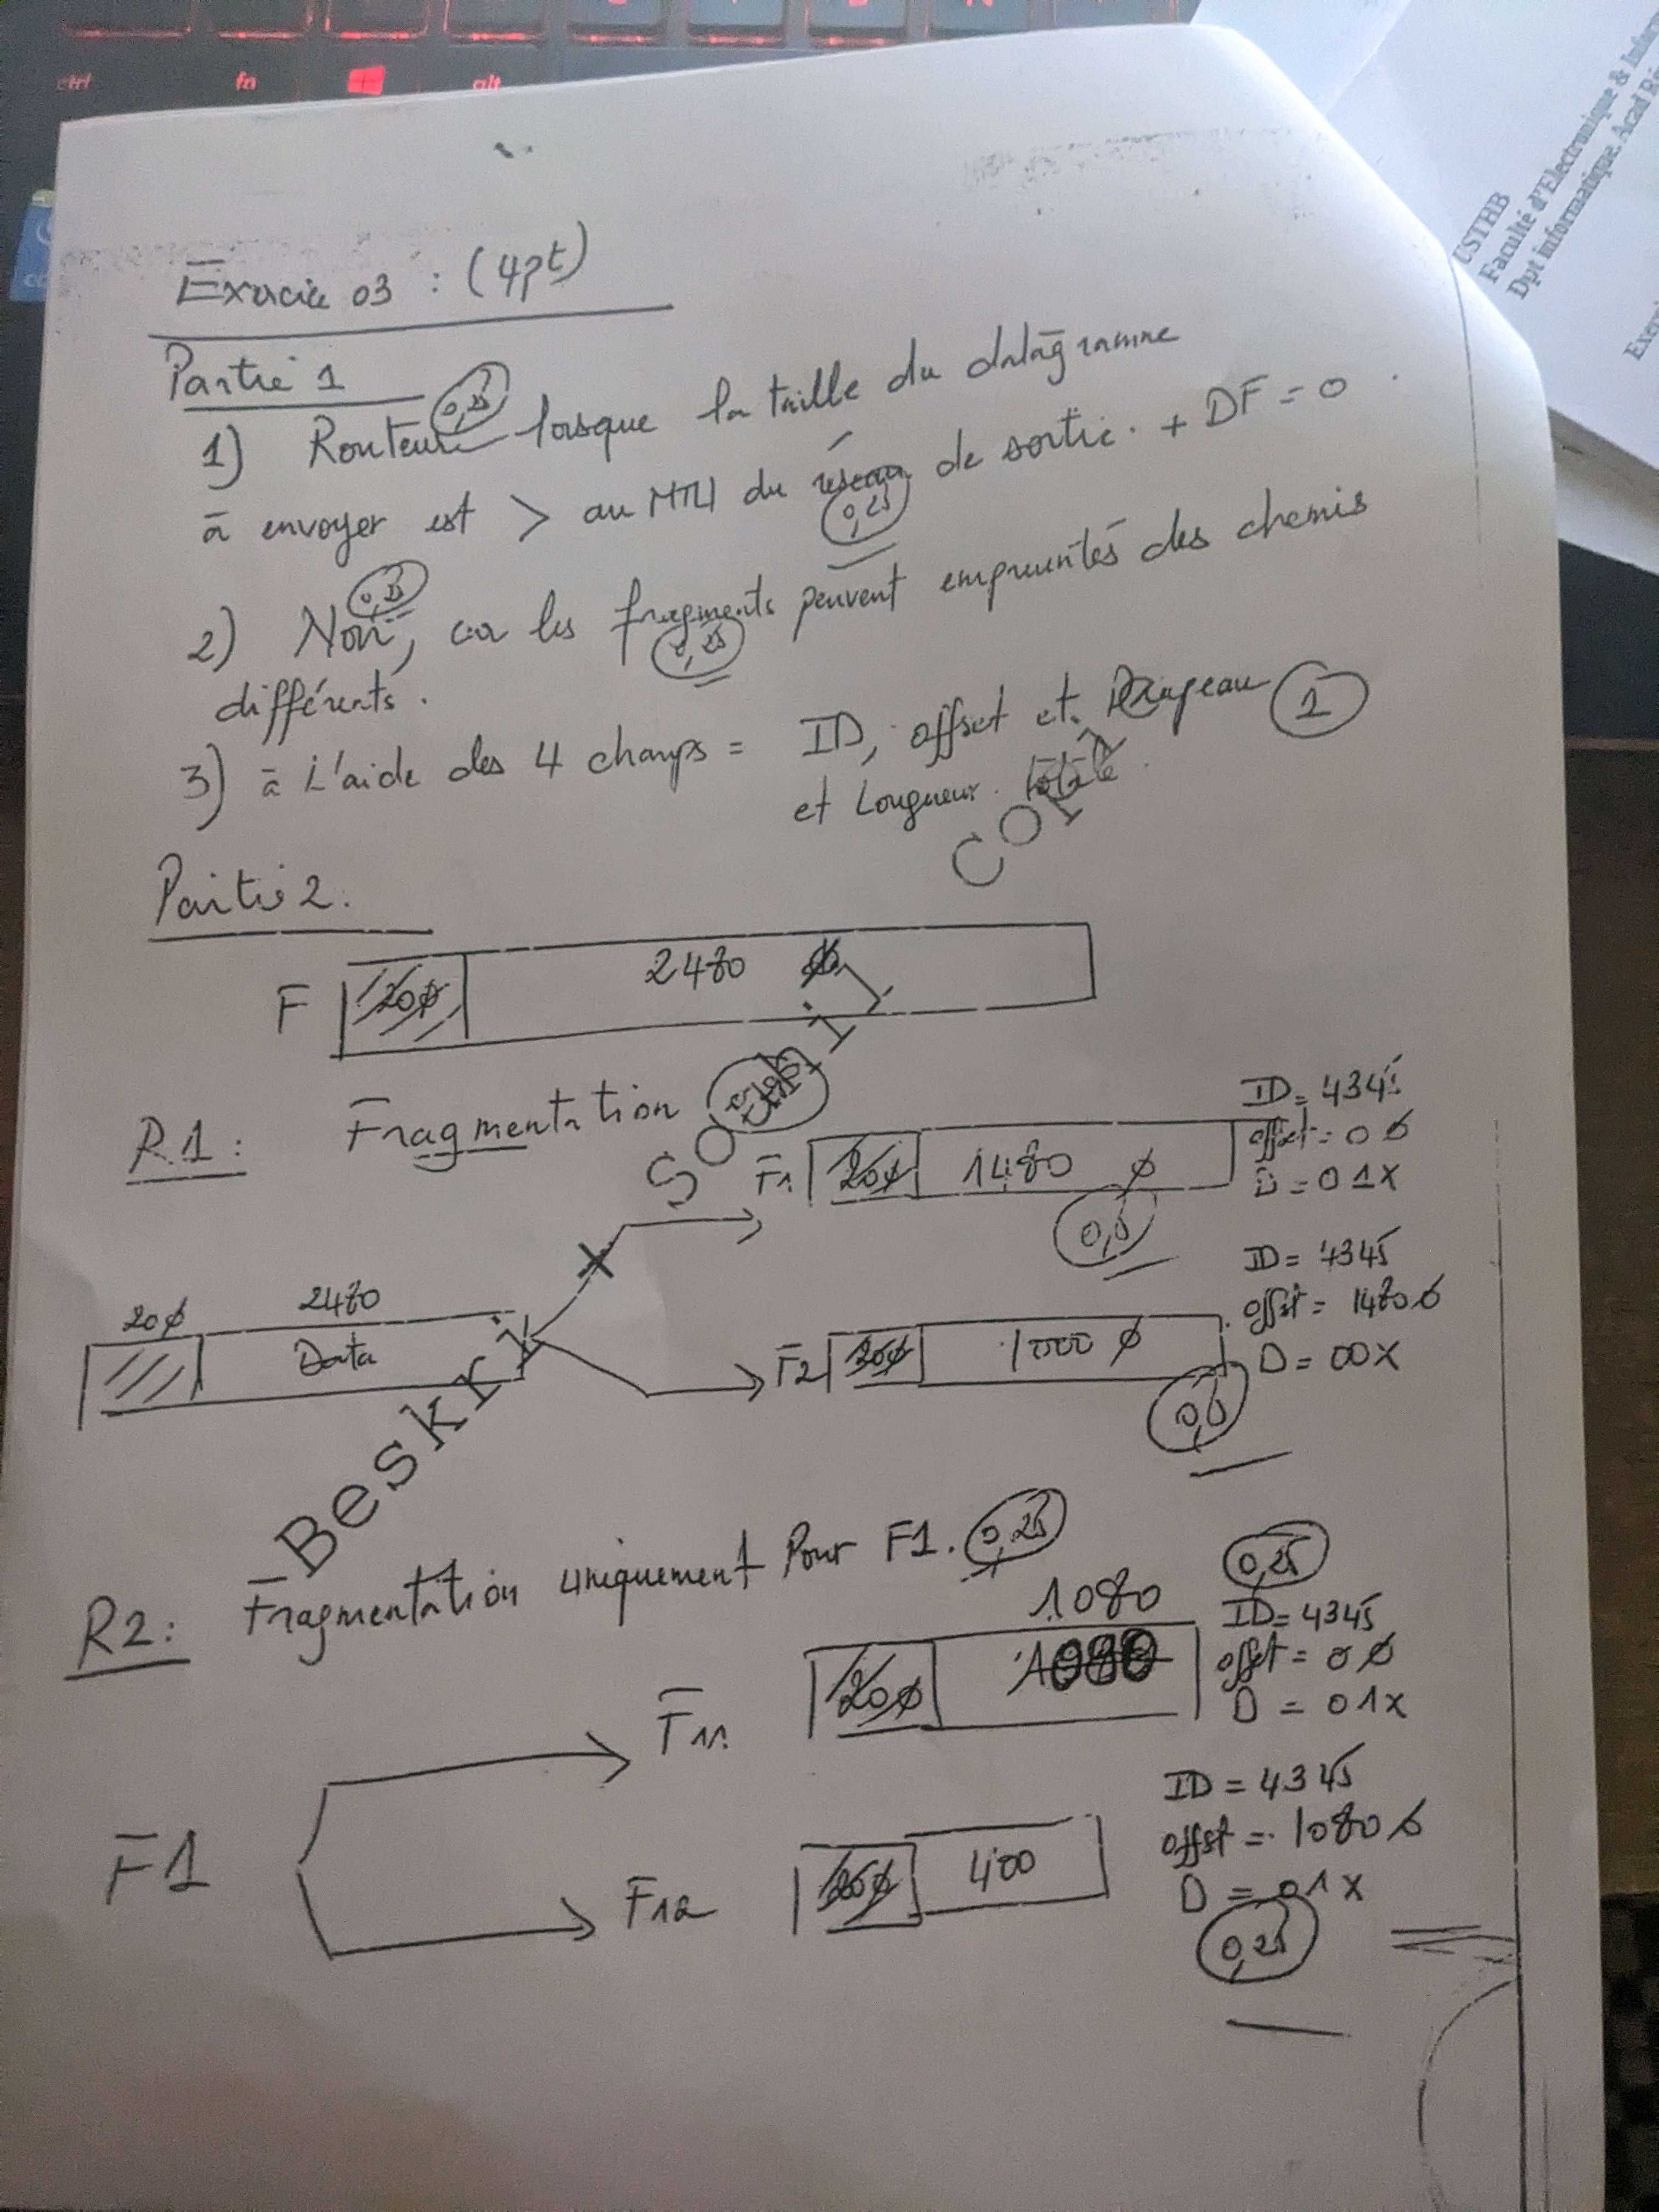 ctrl fn alt
USTHB
Faculté d'Electronique & Infor
Dpt informatique. Acad
Exer
Exercice 03 : (4pt)
Partie 1
1) Routeur 0,25 lorsque la taille du datagramme
à envoyer est > au MTU du réseau de sortie. + DF = 0
0,25
2) Non, 0,25 car les fragments peuvent empruntés des chemis
différents. 0,25
3) à L'aide des 4 champs = ID, offset et Drapeau 1
et Longueur totale.
Partie 2.
F 20ø 2480 ø
R1: Fragmentation
F1 20ø 1480 ø
ID = 4345
offset = 0 ø
D = 01X
0,5
20ø 2480
Data
F2 20ø 1000 ø
ID = 4345
offset = 1480 ø
D = 00X
0,5
COPY
Sochiy
Beskry
R2: Fragmentation uniquement Pour F1. 0,25
0,25
F1
F11 20ø 1080
1080
ID = 4345
offset = 0 ø
D = 01X
F12 20ø 400
ID = 4345
offst = 1080 ø
D = 01X
0,25